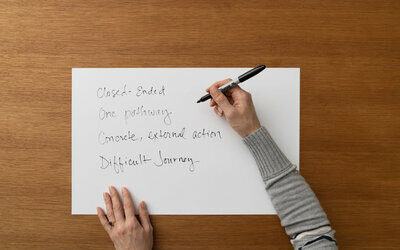 Closed-Ended
One pathway
Concrete, external action
Difficult Journey